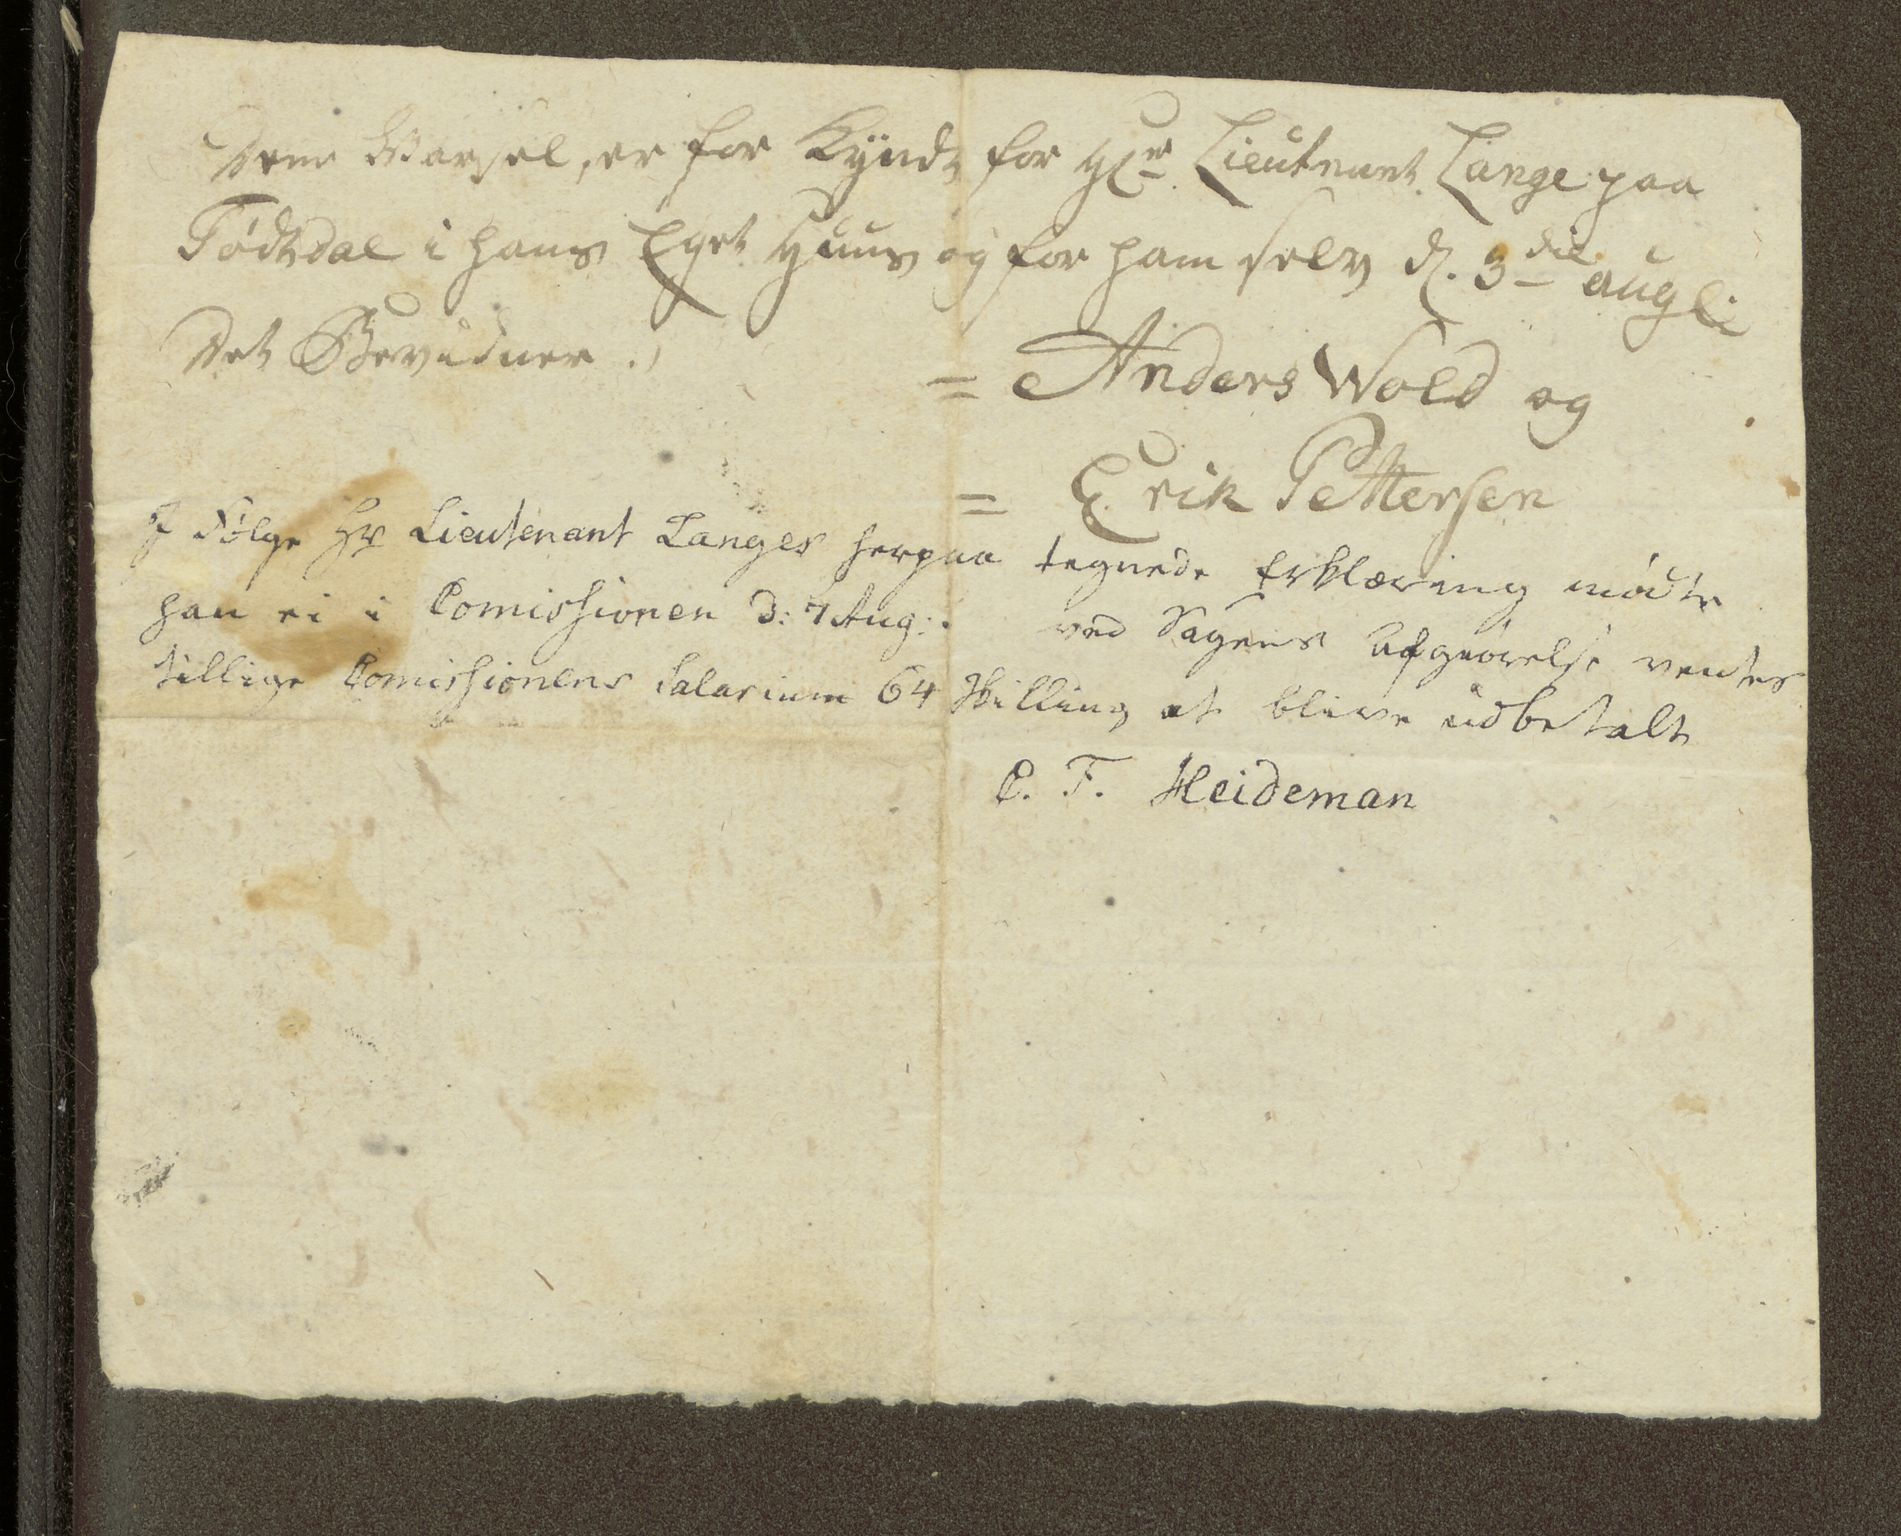 Dene Varsel, er for Kyndt for Hr Lieutnant Lange paa
Tødtsdal i hans Eget Huus og for ham selv d. 3die augli
Det Bevidner .,
= Anders Wold og
= Erik Pettersen
I Følge Hr Lieutenant Langes herpaa tegnede Erklæring mødte
han ei i Comissionen d: 7 Aug: . ved Sagens Afgiørelse ventes
tillige Comissionens Salarium 64 Skilling at blive udbetalt
C. F. Heideman